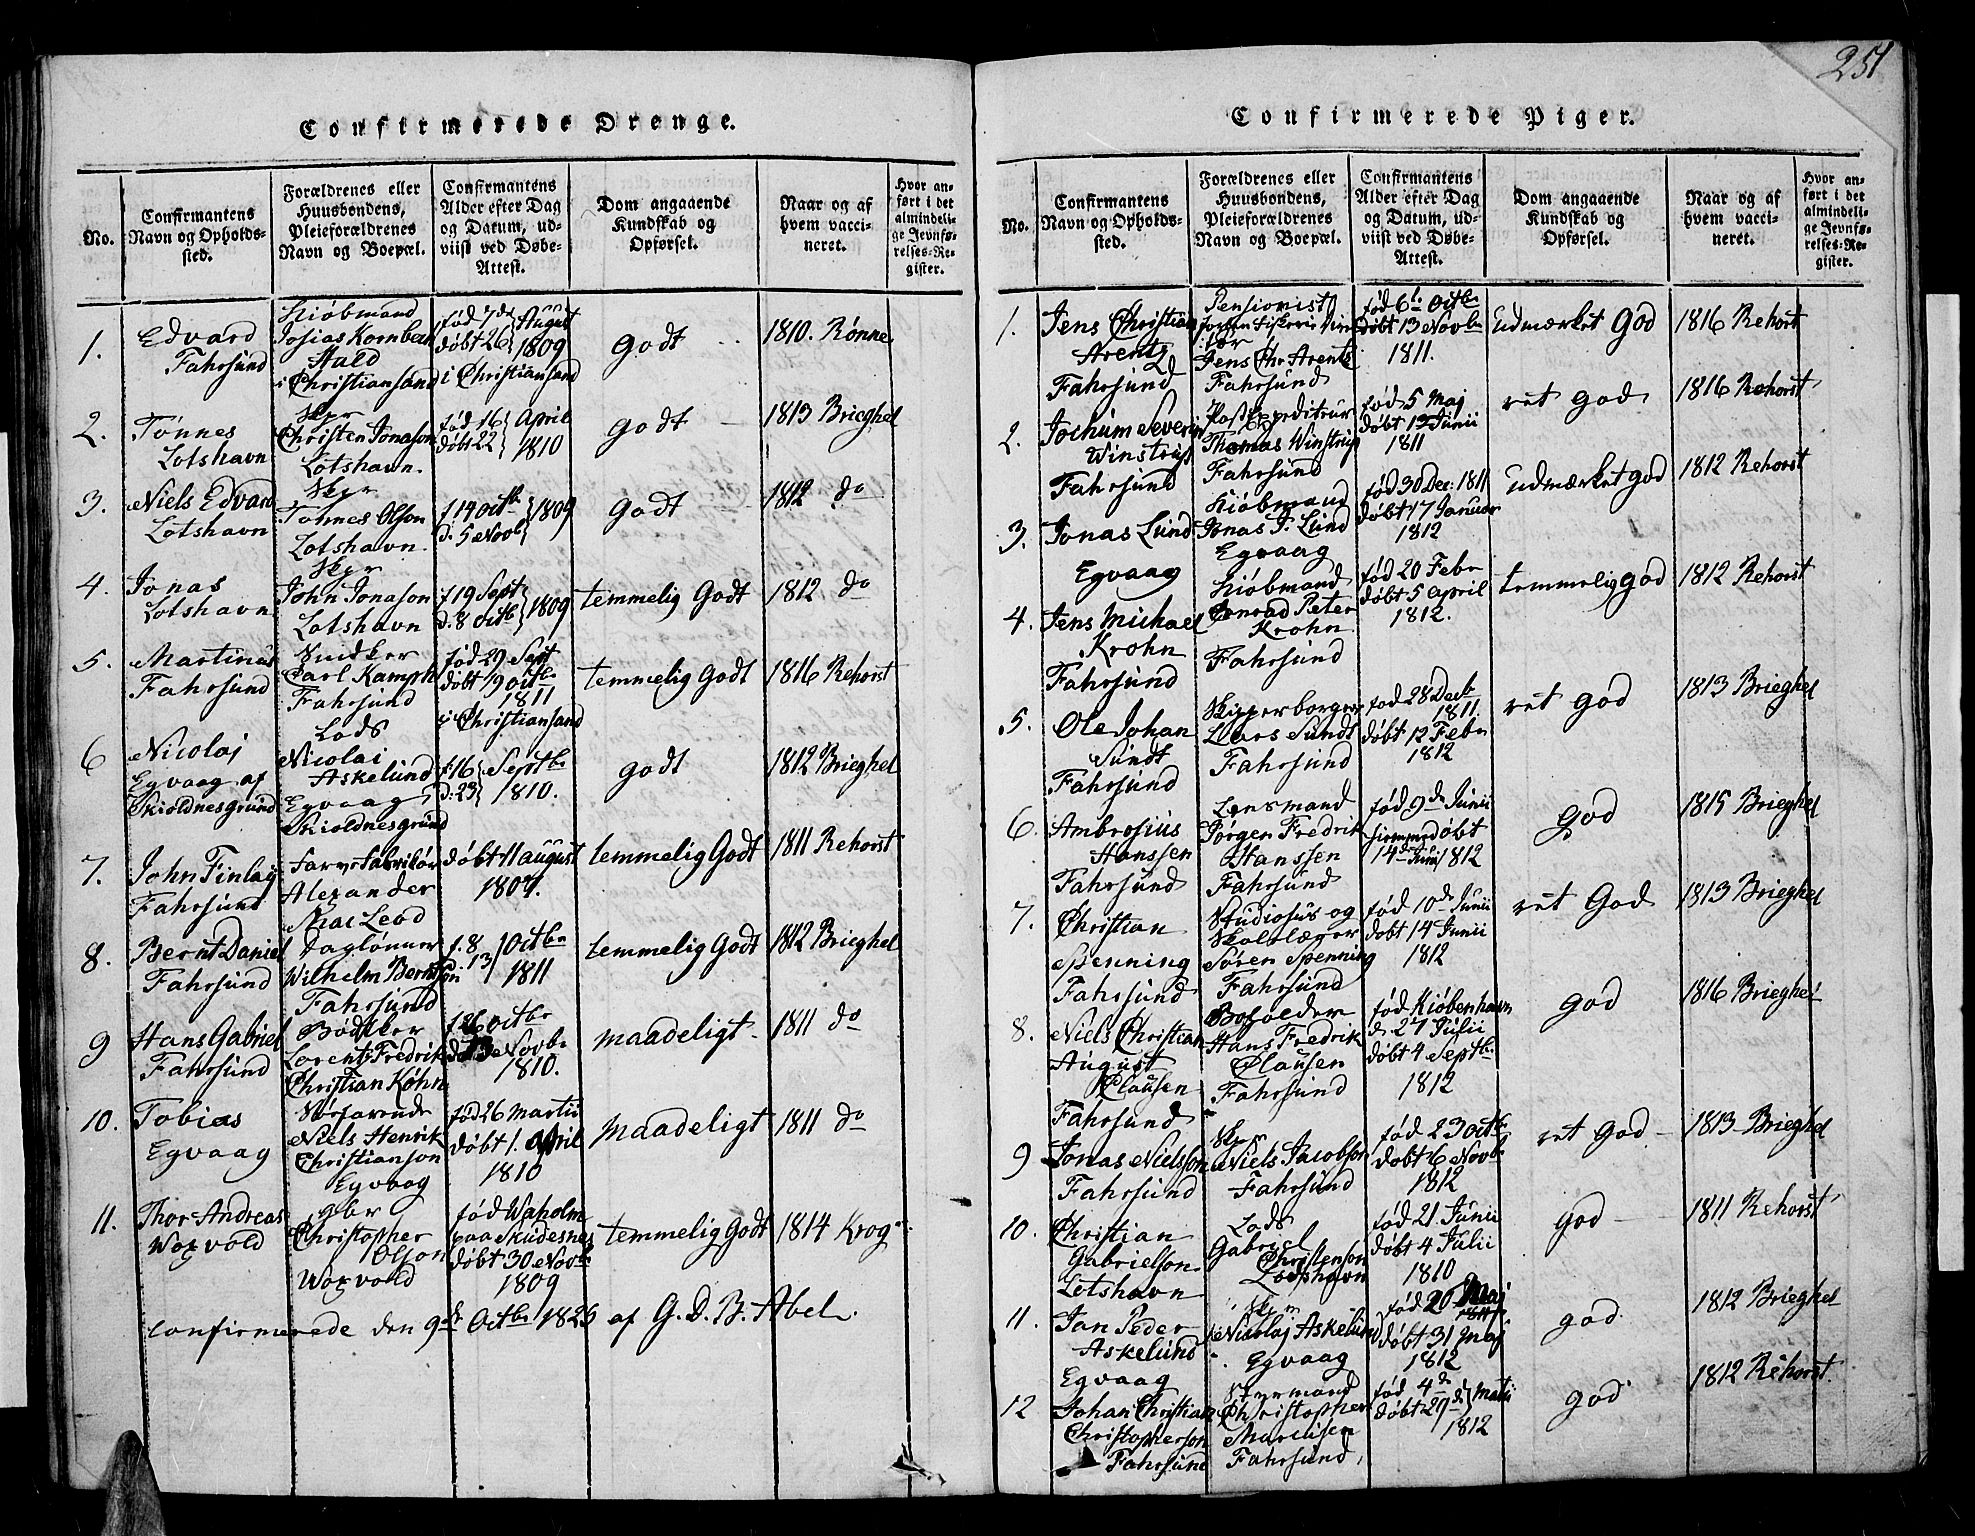 251
Confirmerede Drenge.
No.
Confirmantens
Navn og Opholds-
sted.
Forældrenes eller
Huusbondens,
Pleieforældrenes
Navn og Boepæl.
Confirmantens
Alder efter Dag
og Datum, ud-
viist ved Døbe-
Attest.
Dom angaaende
Kundskab og
Opførsel.
Naar og af
hvem vacci-
neret.
Hvor an-
ført i det
almindeli-
ge Jevnfø-
relses-Re-
gister.
1.
Edvard
Fahrsund
Kiöbmand
Josias Kornbech
Hald
i Christiansand
fød 7de August
døbt 26 1809
i Christiansand
godt
1810. Rønne
2.
Tönnes
Lotshavn
Skpr
Christen Jonason
Lotshavn.
fød 16 April
døbt 22 1810
godt
1813 Brieghel
3.
Niels Edvard
Lotshavn
Skpr
Tønnes Olson
Lotshavn.
f 14 octb 1809
d. 5 Novb
godt
1812 do
4.
Jonas
Lotshavn
Skpr
John Jonason
Lotshavn
f 19 Sept 1809
d. 8 octb
temmelig Godt
1812 do
5.
Martinus
Fahrsund
Snidker
Carl Kamph
Fahrsund
fød 29 Sept
døbt 19 octb
1811
i Christiansand
temmelig Godt
1816 Rehorst
6
Nicolaj
Egvaag af
Skioldnesgrund
Lods
Nicolai
Askelund
Egvaag
Skioldnesgrund
f. 16 Septbr
d: 23 1810.
godt
1812 Brieghel
7.
John Finlay
Fahrsund
Farve Fabrikör
Alexander
Mac Leod
døbt 11 august
1807.
temmelig Godt
1811 Rehorst
8.
Bernt Daniel
Fahrsund
Daglønner
Wilhelm Berntson
Fahrsund
f. 8 Octbr
13 1811
temmelig Godt
1812 Brieghel
9
Hans Gabriel
Fahrsund
Bödker
Lorentz Fredrik
Christian Køhn
f. 26 octbr
Novbr
1810.
maadeligt
1811 do
10.
Tobias
Egvaag
Niels Henrik
Christianson
Egvaag
fød 26 Martii
døbt 1. april
1810
maadeligt
1811 do
11.
Thor Andreas
Woxvold
gbr
Christopher
Olson
Woxvold
fød Waholm
paa Skudesnes
døbt 30 Novbr
1809
temmelig Godt
1814 Krog
Confirmerede den 9de Octbr 1825 af G. D. B. Abel.
Confirmerede Piger.
No.
Confirmantens
Navn og Opholds-
sted.
Forældrenes eller
Huusbondens,
Pleieforældrenes
Navn og Boepæl.
Confirmantens
Alder efter Dag
og Datum, ud-
viist ved Døbe-
Attest.
Dom angaaende
Kundskab og
Opførsel.
Naar og af
hvem vacci-
neret.
Hvor an-
ført i det
almindeli-
ge Jevnfø-
relses-Re-
gister.
1.
Jens Christian
Arentz
Fahrsund
Pensionist
Jens Chr Arentz
Fahrsund
fød 6te Octbr
døbt 13 Novbr
1811.
udmærket God
1816 Rehorst
2.
Jochum Severin
Winstrup
Fahrsund
Postexpediteur
Thomas Winstrup
Fahrsund
fød 5 Maj
døbt 12 Junii
1811
ret God
1816 Rehorst
3.
Jonas Lund
Egvaag
Kiöbmand
Jonas J. Lund
Egvaag
fød 30 Dec: 1811
døbt 17 Januar
1812
udmærket god
1812 Rehorst
4.
Jens Michael
Krohn
Fahrsund
Kiöbmand
Conrad Peter
Krohn
Fahrsund
fød 20 Febr
døbt 5 april
1812.
temmelig god
1812 Rehorst
5.
Ole Johan
Sundt
Fahrsund
Skipperborger
Lars Sundt
Fahrsund
fød 28 Decb
1811.
døbt 12 Febr
1812
ret god
1813 Brieghel
6.
Ambrosius
Hanssen
Fahrsund
Lensmand
Jørgen Fredrik
Hanssen
Fahrsund
fød 9de Junii
hiemmedøbt
14de Junij 1812
god
1815 Brieghel
7.
Christian
Spenning
Fahrsund
Studiosus og
Skolelærer
Sören Spenning
Fahrsund
fød 10de Junii
døbt 14 Junii
1812
ret God
1813 Brieghel
8.
Niels Christian
August
Clausen
Fahrsund
Hans Fredrik
Clausen
Fahrsund
fød Kiöbenhavn
d. 27 Julii
døbt 4 Septbr
1812
god
1816 Brieghel
9
Jonas Nielsson
Fahrsund
Skpr
Niels Jacobson
Fahrsund
fød 23 Octbr
døbt 6 Novbr
1812
ret God
1813 Brieghel
10.
Christian
Gabrielson
Lotshavn
Lods
Gabriel
Christenson
Lodshavn
fød 21 Junii
døbt 4 Julii
1810
god
1811 Rehorst
11.
Jan Peder
Askelund
Egvaag
Nicolaj Askelund
Egvaag
fød 20 Maj
døbt 31 maj
1812
god
1812 Brieghel
12
Johan Christian
Christopherson
Fahrsund
Styrmand
Christopher
Marcusen
Fahrsund
fød 4de
døbt 29de Martii
1812
god
1812 Rehorst